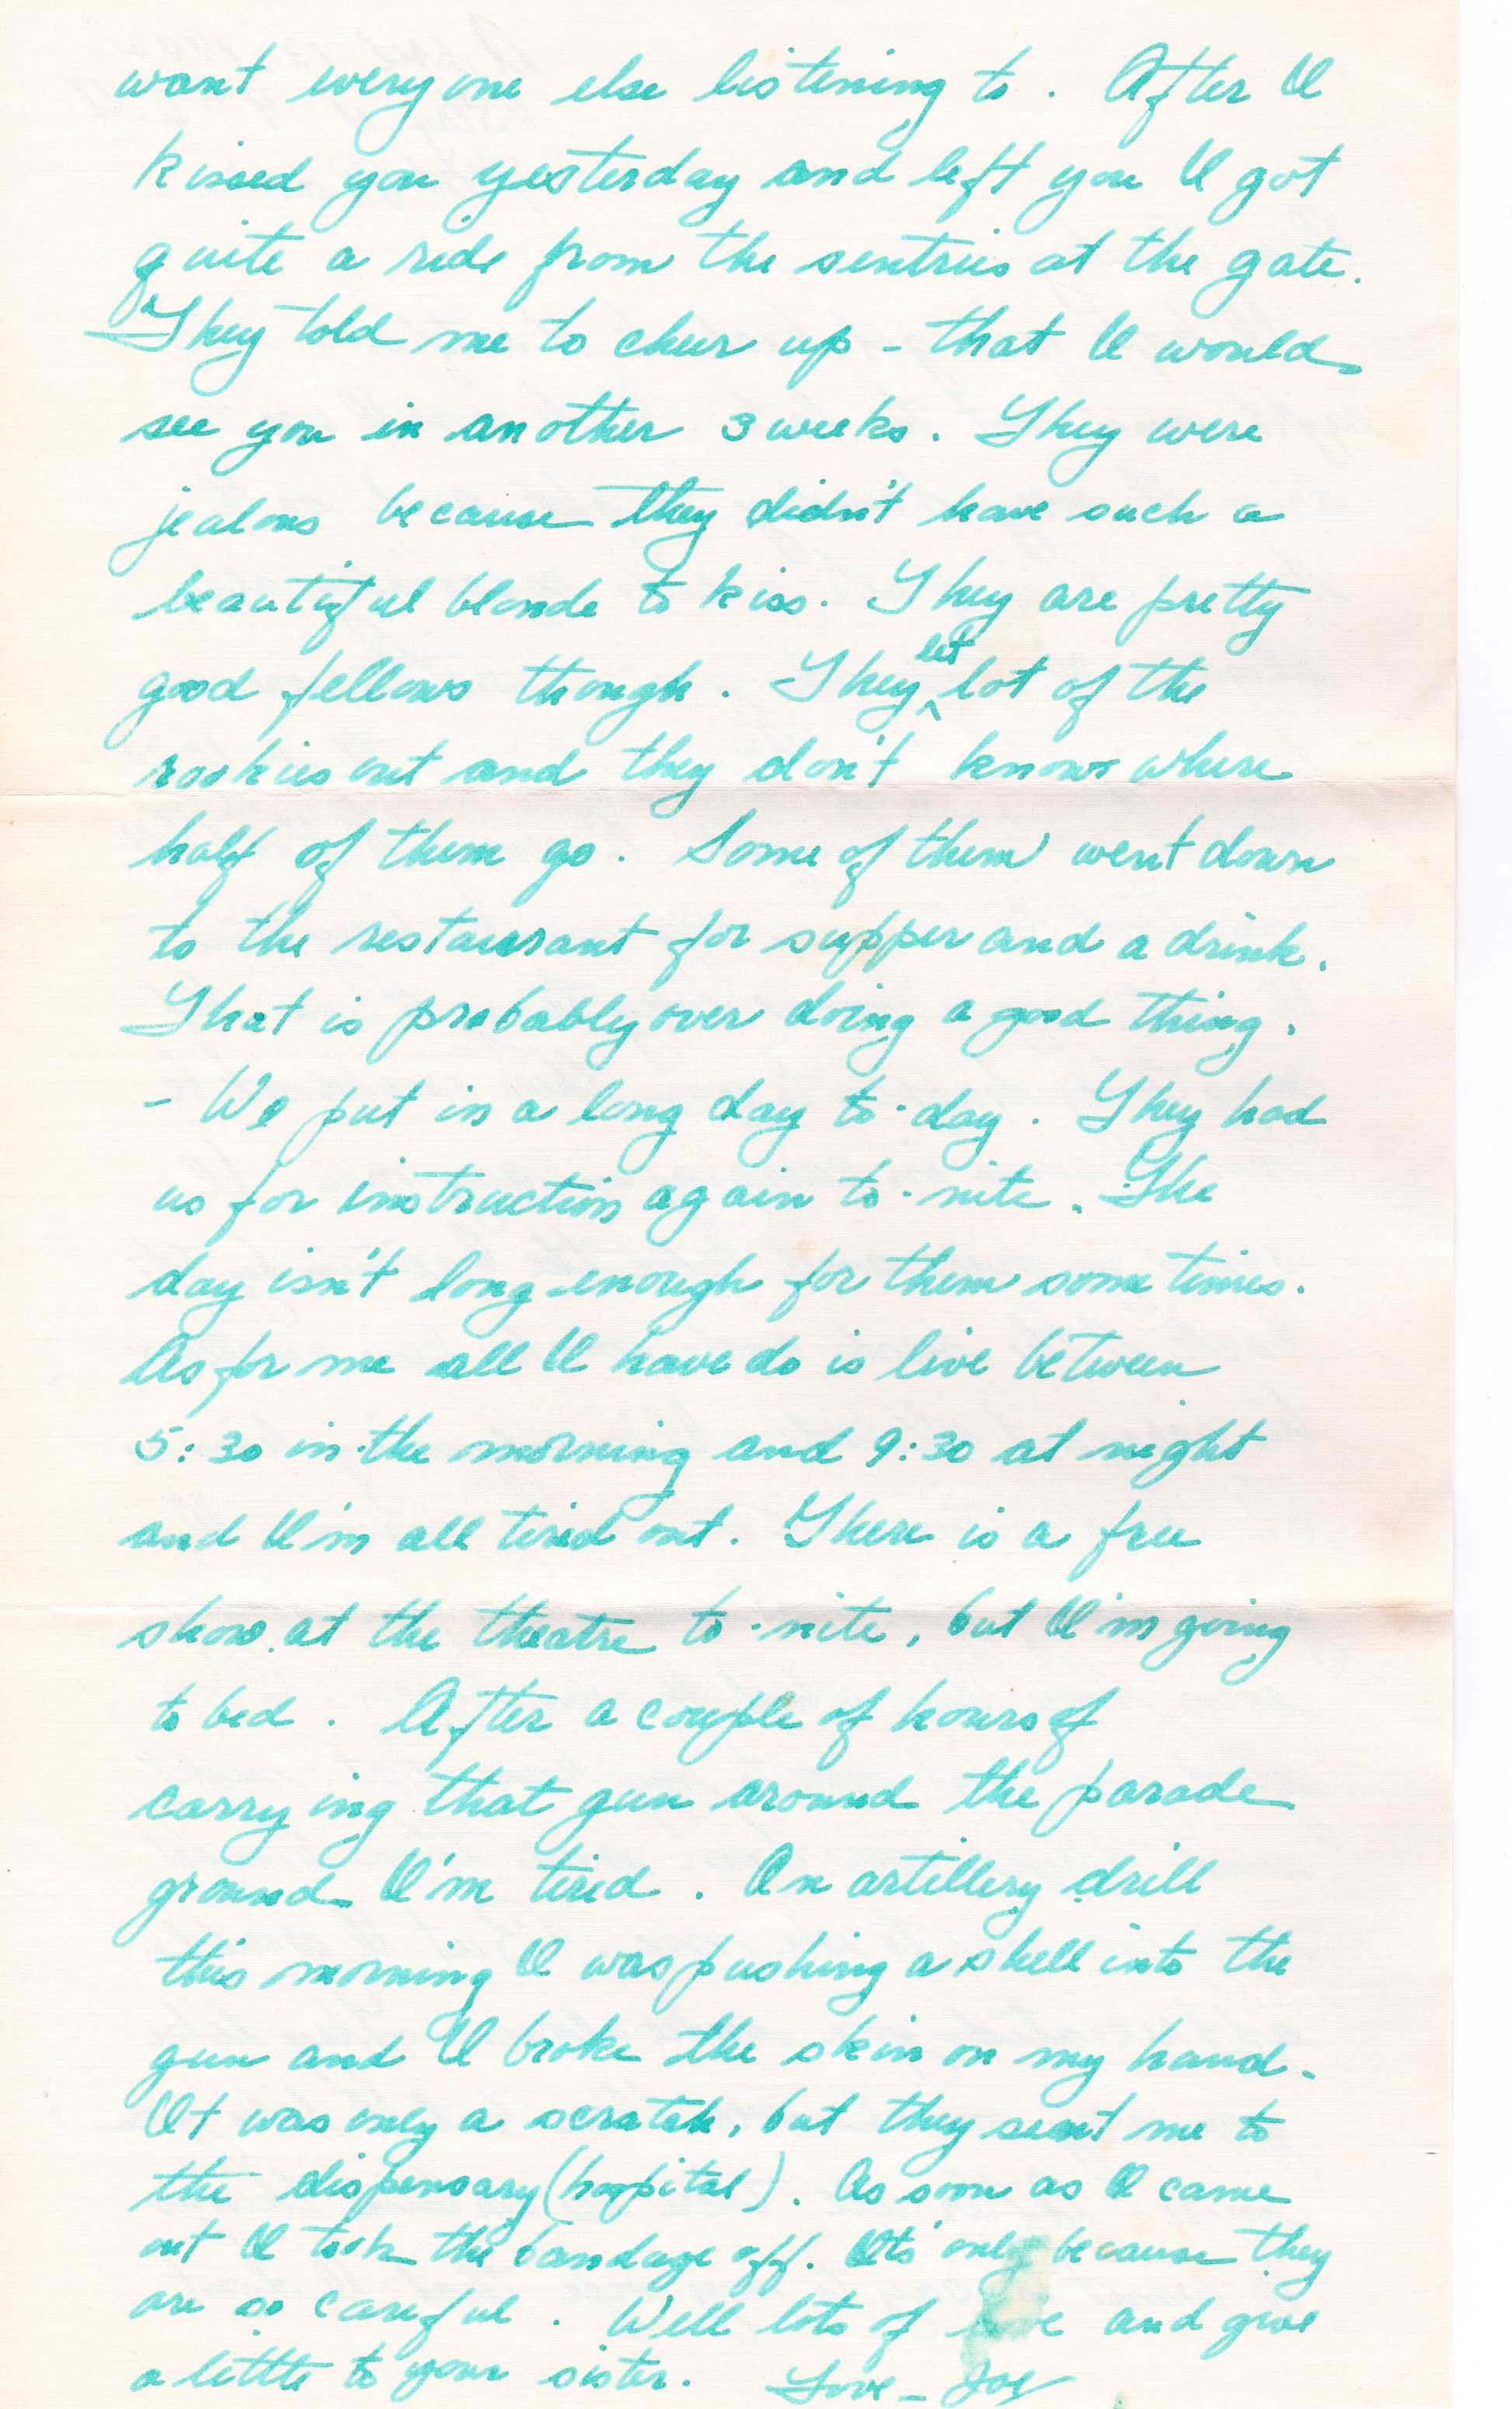 want everyone else listening to. After I
kissed you yesterday and left you I got
quite a ride from the sentries at the gate.
They told me to cheer up - that I would
see you in another 3 weeks. They were
jealous because they didn't have such a
beautiful blonde to kiss. They are pretty
good fellows though. They let lot of the
rookies out and they don't know where
half of them go. Some of them went down
to the restaurant for supper and a drink.
That is probably over doing a good thing.
- We put in a long day to-day. They had
us for instruction again to-nite. The
day isn't long enough for them sometimes.
As for me all I have do is live between
5:30 in the morning and 9:30 at night
and I'm all tired out. There is a free
show at the theatre to-nite, but I'm going
to bed. After a couple of hours of
carrying that gun around the parade
ground I'm tired. On artillery drill
this morning I was pushing a shell into the
gun and I broke the skin on my hand.
It was only a scratch, but they sent me to
the dispensary (hospital). As soon as I came
out I took the bandage off. It's only because they
are so careful. Well lots of love and give
a little to your sister. Love - Joe